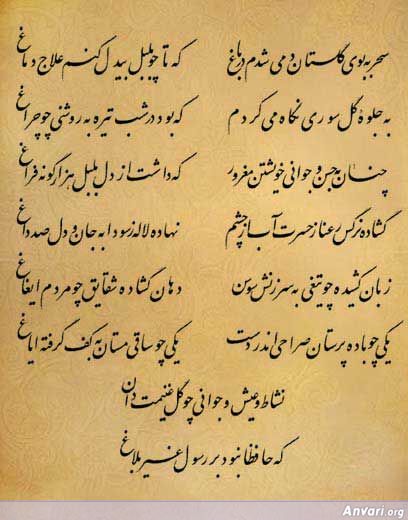 سحر به بوی گلستان دمی شدم در باغ که تا چو بلبل بیدل کنم علاج دماغ
به جلوه گل سوری نگاه می کردم که بود در شب تیره به روشنی چو چراغ
چنان به حسن و جوانی خویشتن مغرور که داشت از دل بلبل هزار گونه فراغ
گشاده نرگس رعنا ز حسرت آب از چشم نهاده لاله ز سودا به جان و دل صد داغ
زبان کشیده چو تیغی به سرزنش سوسن دهان گشاده شقایق چو مردم ایغاغ
یکی چو باده پرستان صراحی اندر دست یکی چو ساقی مستان به کف گرفته ایاغ
نشاط و عیش و جوانی چو گل غنیمت دان
که حافظا نبود بر رسول غیر بلاغ
Anvari.org